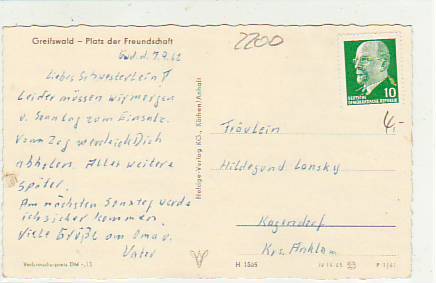 Greifswald – Platz der Freundschaft
2200
Gwd. d. 7.9.62
Liebes Schwesterlein!
Leider müssen wir morgen
u. Sonntag zum Einsatz.
Vom Zug werde ich Dich
abholen. Alles weitere
später.
Am nächsten Sonntag werde
ich sicher kommen.
Viele Grüße an Oma u.
Vater
Verbraucherpreis DM -,15
Hehige-Verlag KG., Köthen/Anhalt
10
DEUTSCHE
DEMOKRATISCHE REPUBLIK
4,-
Fräulein
Hildegund Lansky
Kagendorf
Krs. Anklam
H 1565